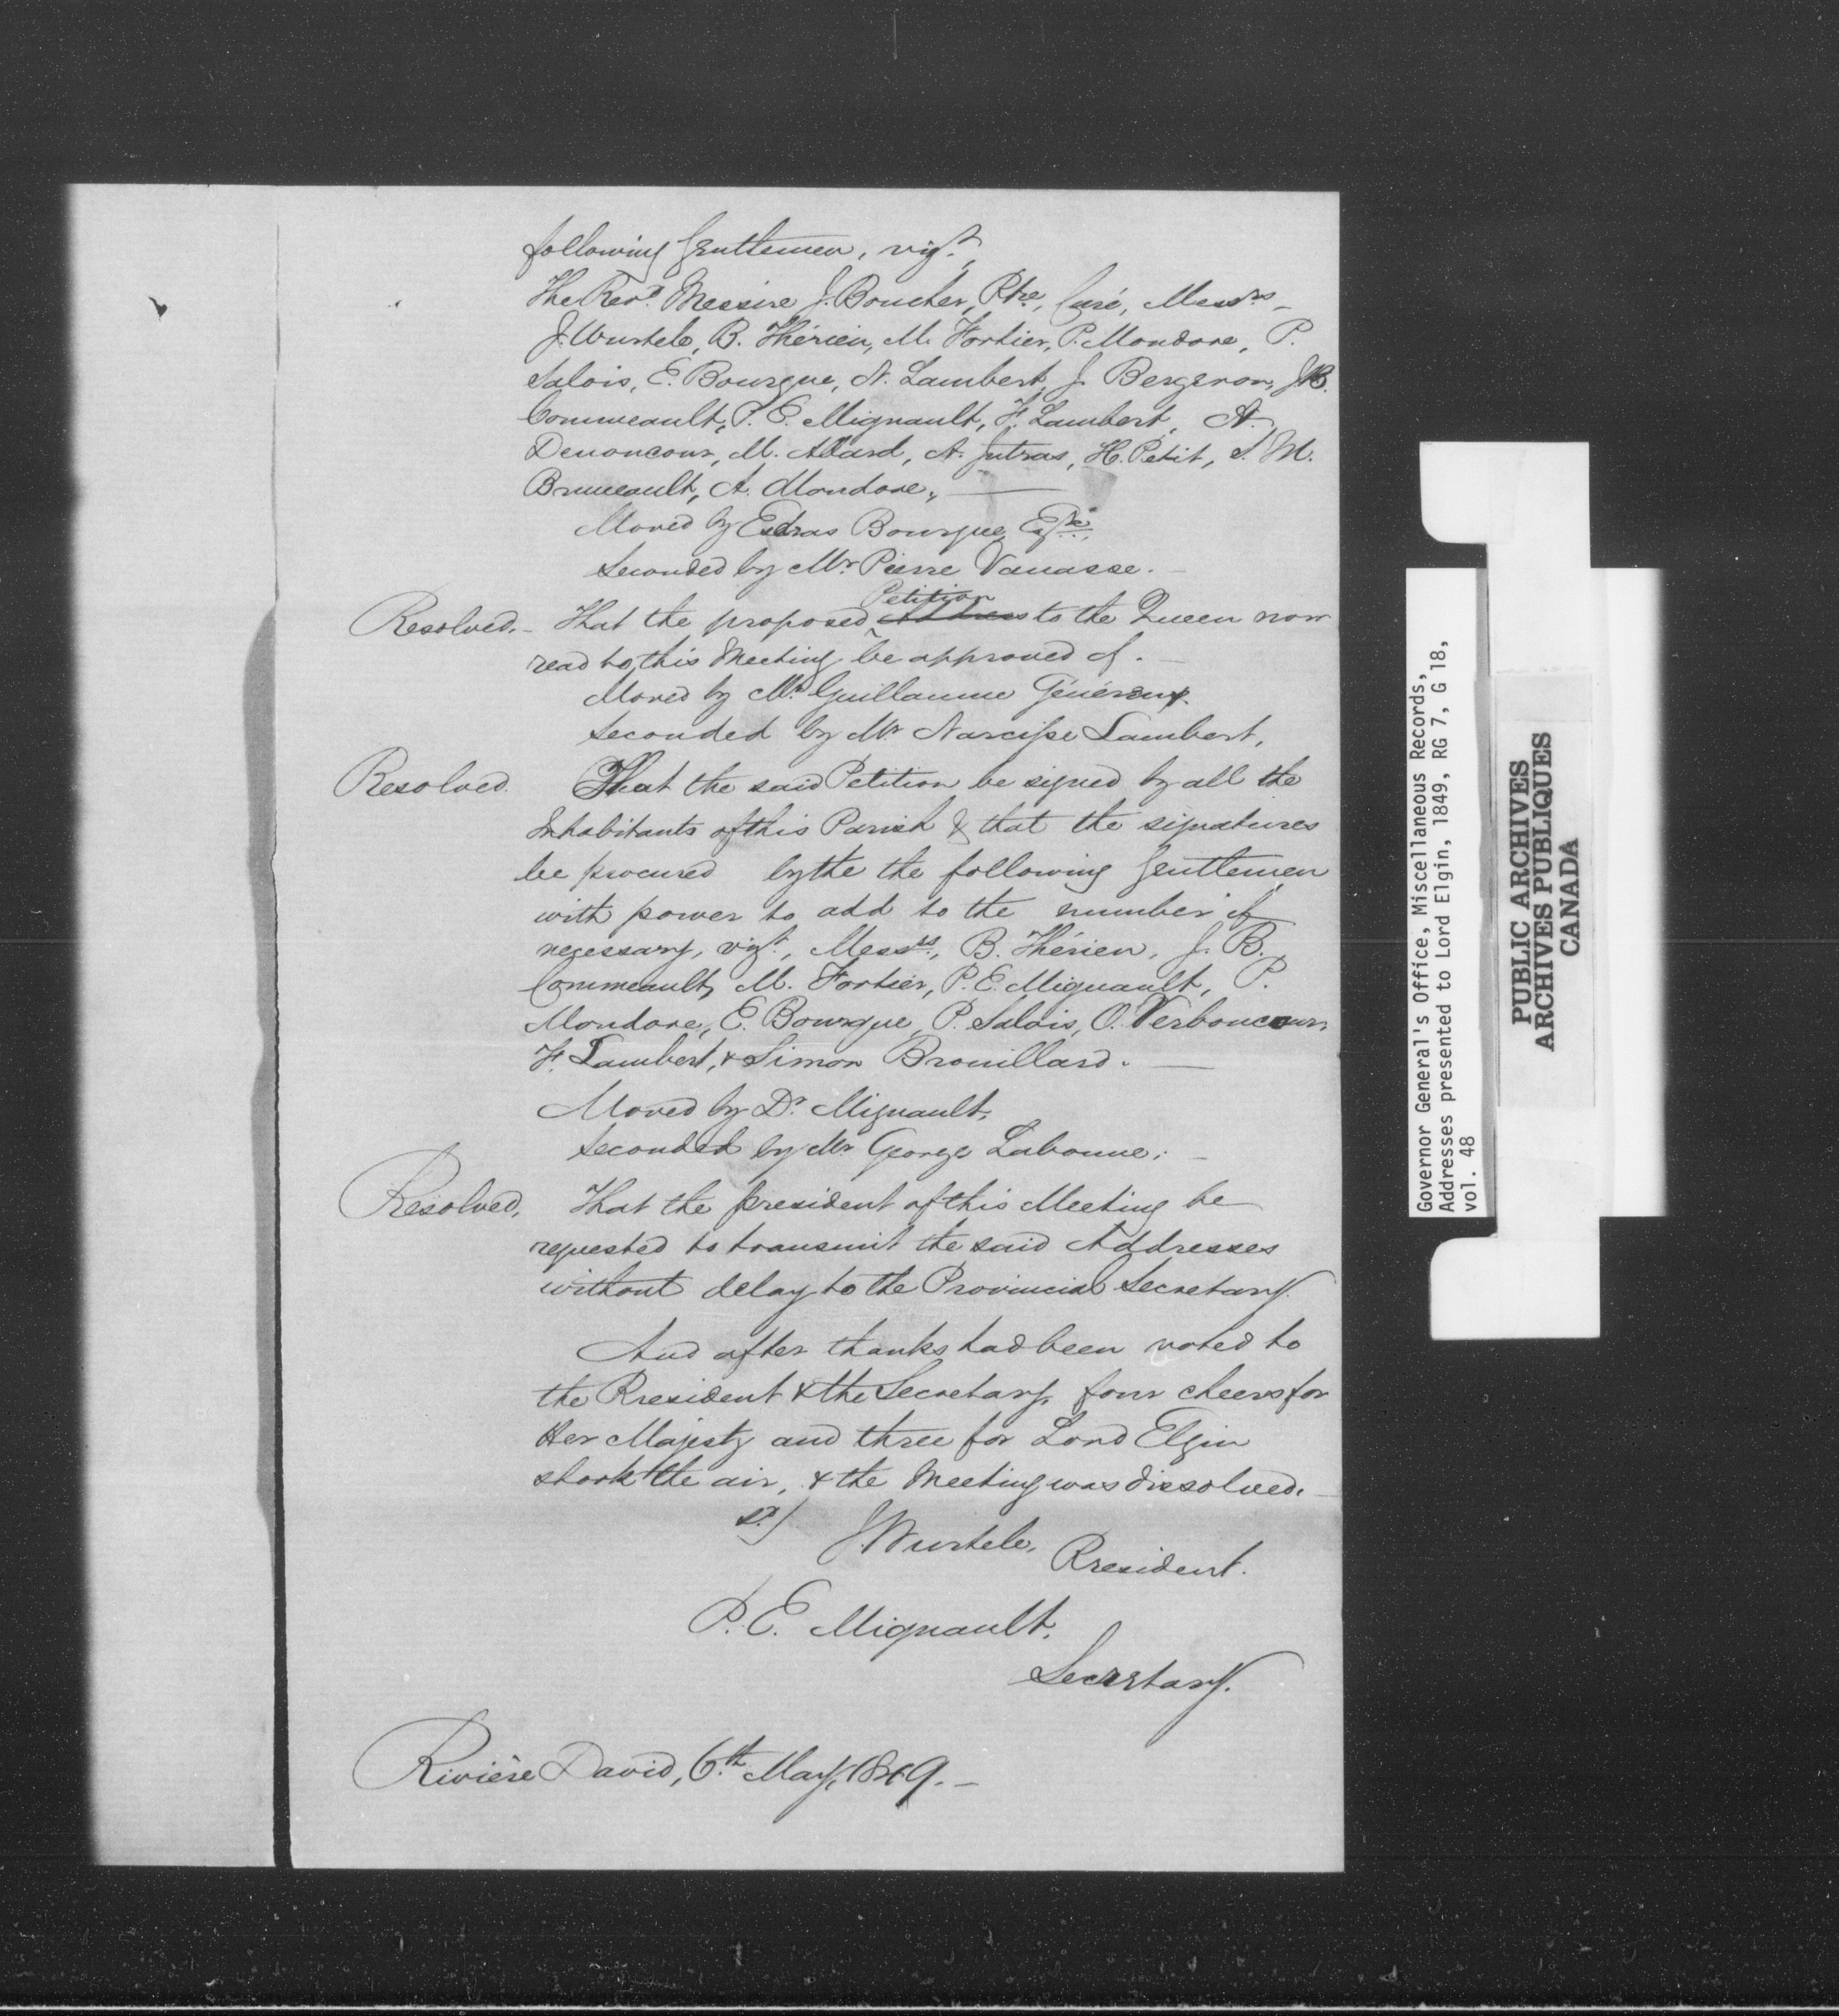 following Gentlemen, vizt.
The Revd. Messire J. Boucher, Ptre, Curé, Messrs
J. Wurtele, B. Thérien, M. Fortier, P. Mondore, P.
Salois, E. Bourque, N. Lambert, J. Bergeron, J.B.
Commeault, P. E. Mignault, F. Lambert, A.
Denoncour, M. Allard, A. Jutras, H. Petit, S. M.
Bruneault, A. Mondore,
Moved by Esdras Bourque, Esqre,
Seconded by Mr. Pierre Vanasse.
Petition
Resolved.- That the proposed Address to the Queen now
read to this Meeting be approved of.
Moved by Mr. Guillaume Généreux.
Seconded by Mr Narcisse Lambert,
Resolved. That the said Petition be signed by all the
Inhabitants of this Parish & that the signatures
be procured by the the following Gentlemen
with power to add to the number if
necessary, vizt., Messrs., B. Thérien, J. B.
Commeault, M. Fortier, P. E. Mignault, P.
Mondore, E. Bourque, P. Salois, O. Verboncour,
F. Lambert, & Simon Brouillard.
Moved by Dr. Mignault,
Seconded by Mr George Labonne;
Resolved, That the president of this Meeting be
requested to transmit the said Addresses
without delay to the Provincial Secretary.
And after thanks had been voted to
the President & the Secretary, four cheers for
Her Majesty and three for Lord Elgin
shook the air, & the Meeting was dissolved.
Sd/ J. Wurtele, President.
P. E. Mignault.
Secretary.
Rivière David, 6.th May, 1849.-
Governor General's Office, Miscellaneous Records,
Addresses presented to Lord Elgin, 1849, RG 7, G 18,
vol. 48
PUBLIC ARCHIVES
ARCHIVES PUBLIQUES
CANADA